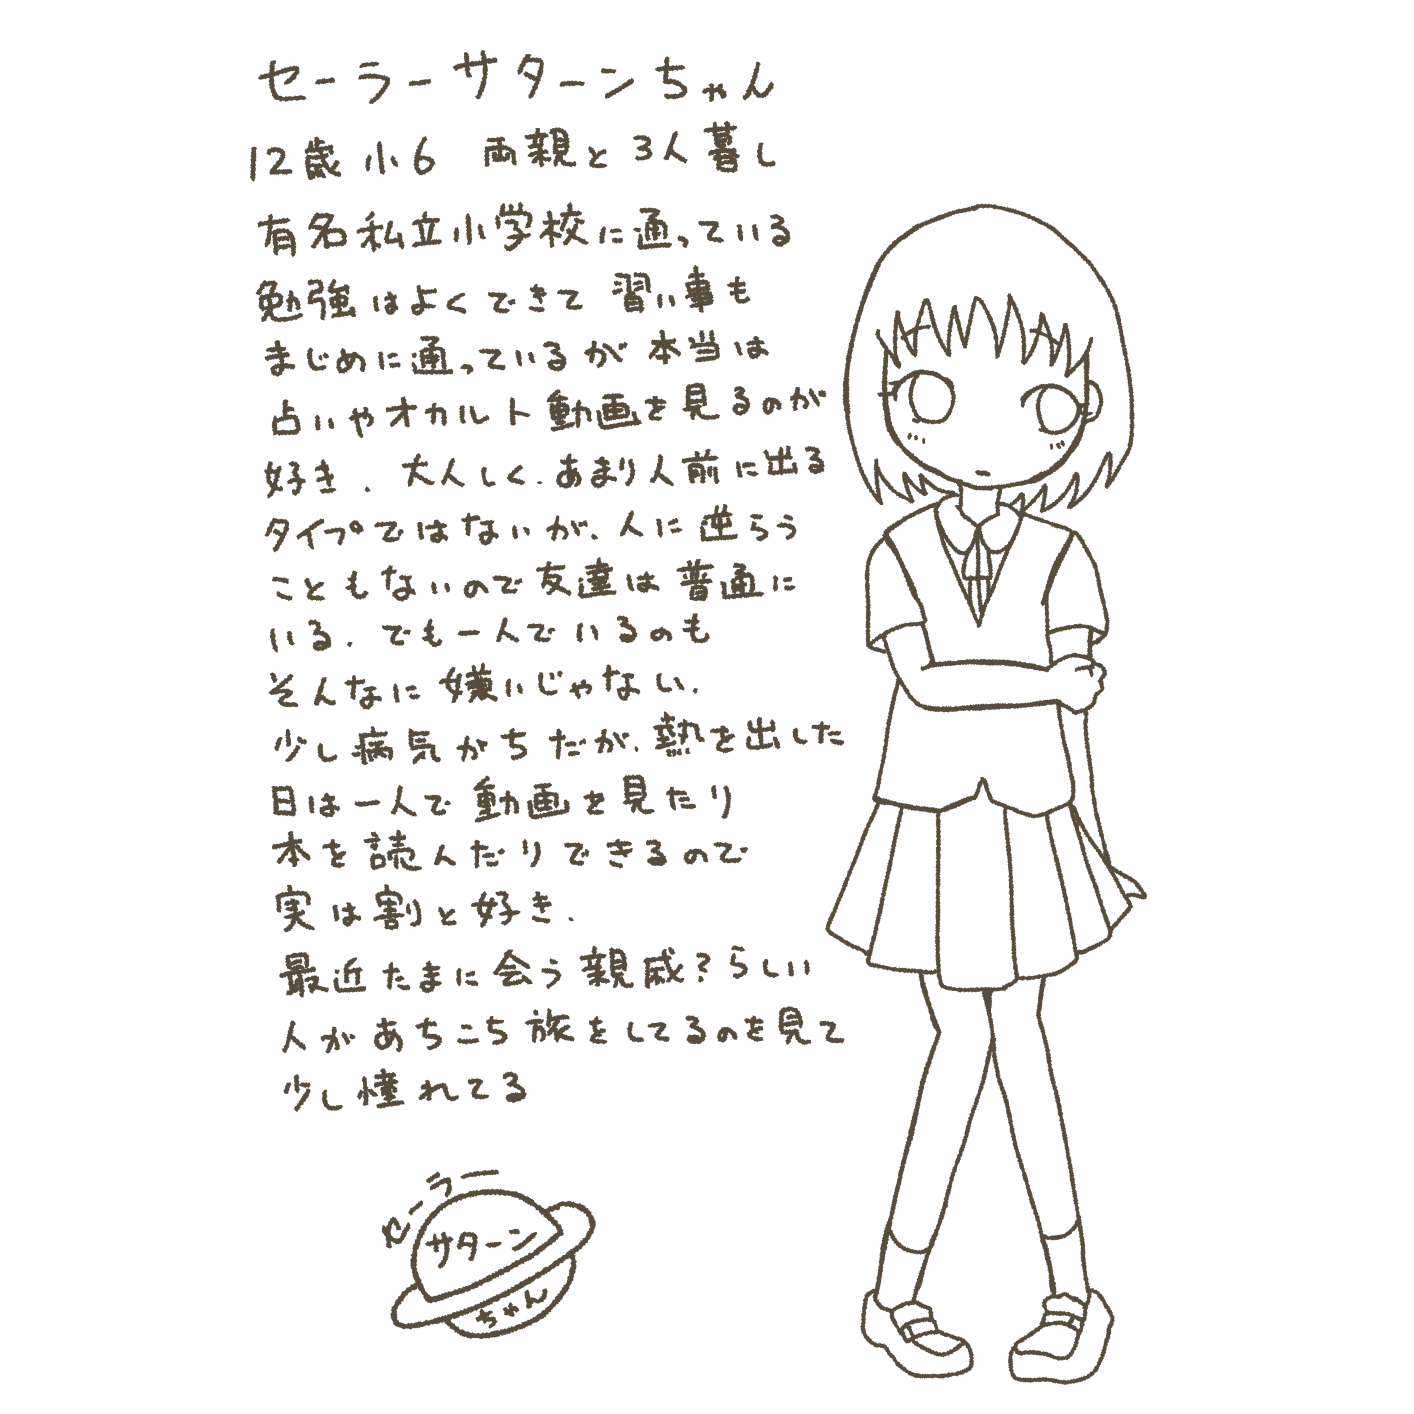 セーラーサターンちゃん
12歳 小6 両親と3人暮し
有名私立小学校に通っている
勉強はよくできて 習い事も
まじめに通っているが 本当は
占いやオカルト動画を見るのが
好き. 大人しく.あまり人前に出る
タイプではないが、人に逆らう
こともないので友達は普通に
いる. でも一人でいるのも
そんなに嫌いじゃない.
少し病気がちだが、熱を出した
日は一人で動画を見たり
本を読んだりできるので
実は割と好き.
最近たまに会う親戚?らしい
人があちこち旅をしてるのを見て
少し憧れてる
セーラー
サターン
ちゃん